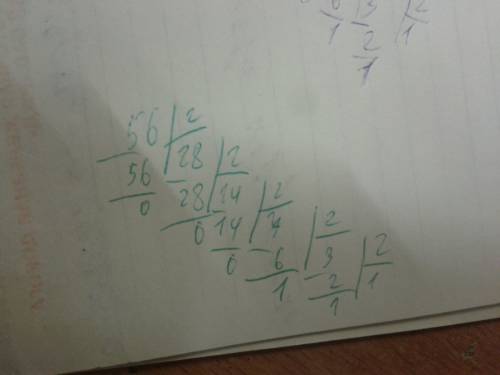 6 3 2
1 2 1
1
56 2
56 28 2
0 28 14 2
0 14 7 2
0 6 3 2
1 2 1
1